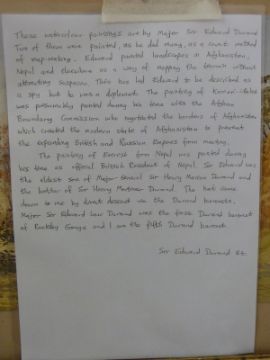 These watercolour paintings are by Major Sir Edward Durand
Two of them were painted, as he did many, as a covert method
of map-making. Edward painted landscapes in Afghanistan,
Nepal and elsewhere as a way of mapping the terrain without
attracting suspicion. This has led Edward to be described as
a spy but he was a diplomat. The painting of
was presumably painted during his time with the Afghan
Boundary Commission who negotiated the borders of Afghanistan
which created the modern state of Afghanistan to prevent
the expanding British and Russian Empires from meeting.
The painting of Everest from Nepal was painted during
his time as official British Resident of Nepal. Sir Edward was
the eldest son of Major-General Sir Henry Marion Durand and
the brother of Sir Henry Mortimer Durand. The
down to me by direct descent via the Durand baronets.
Major Sir Edward Law Durand was the first Durand baronet
of Ruckley Grange and I am the fifth Durand baronet.
Sir Edward Durand Bt.